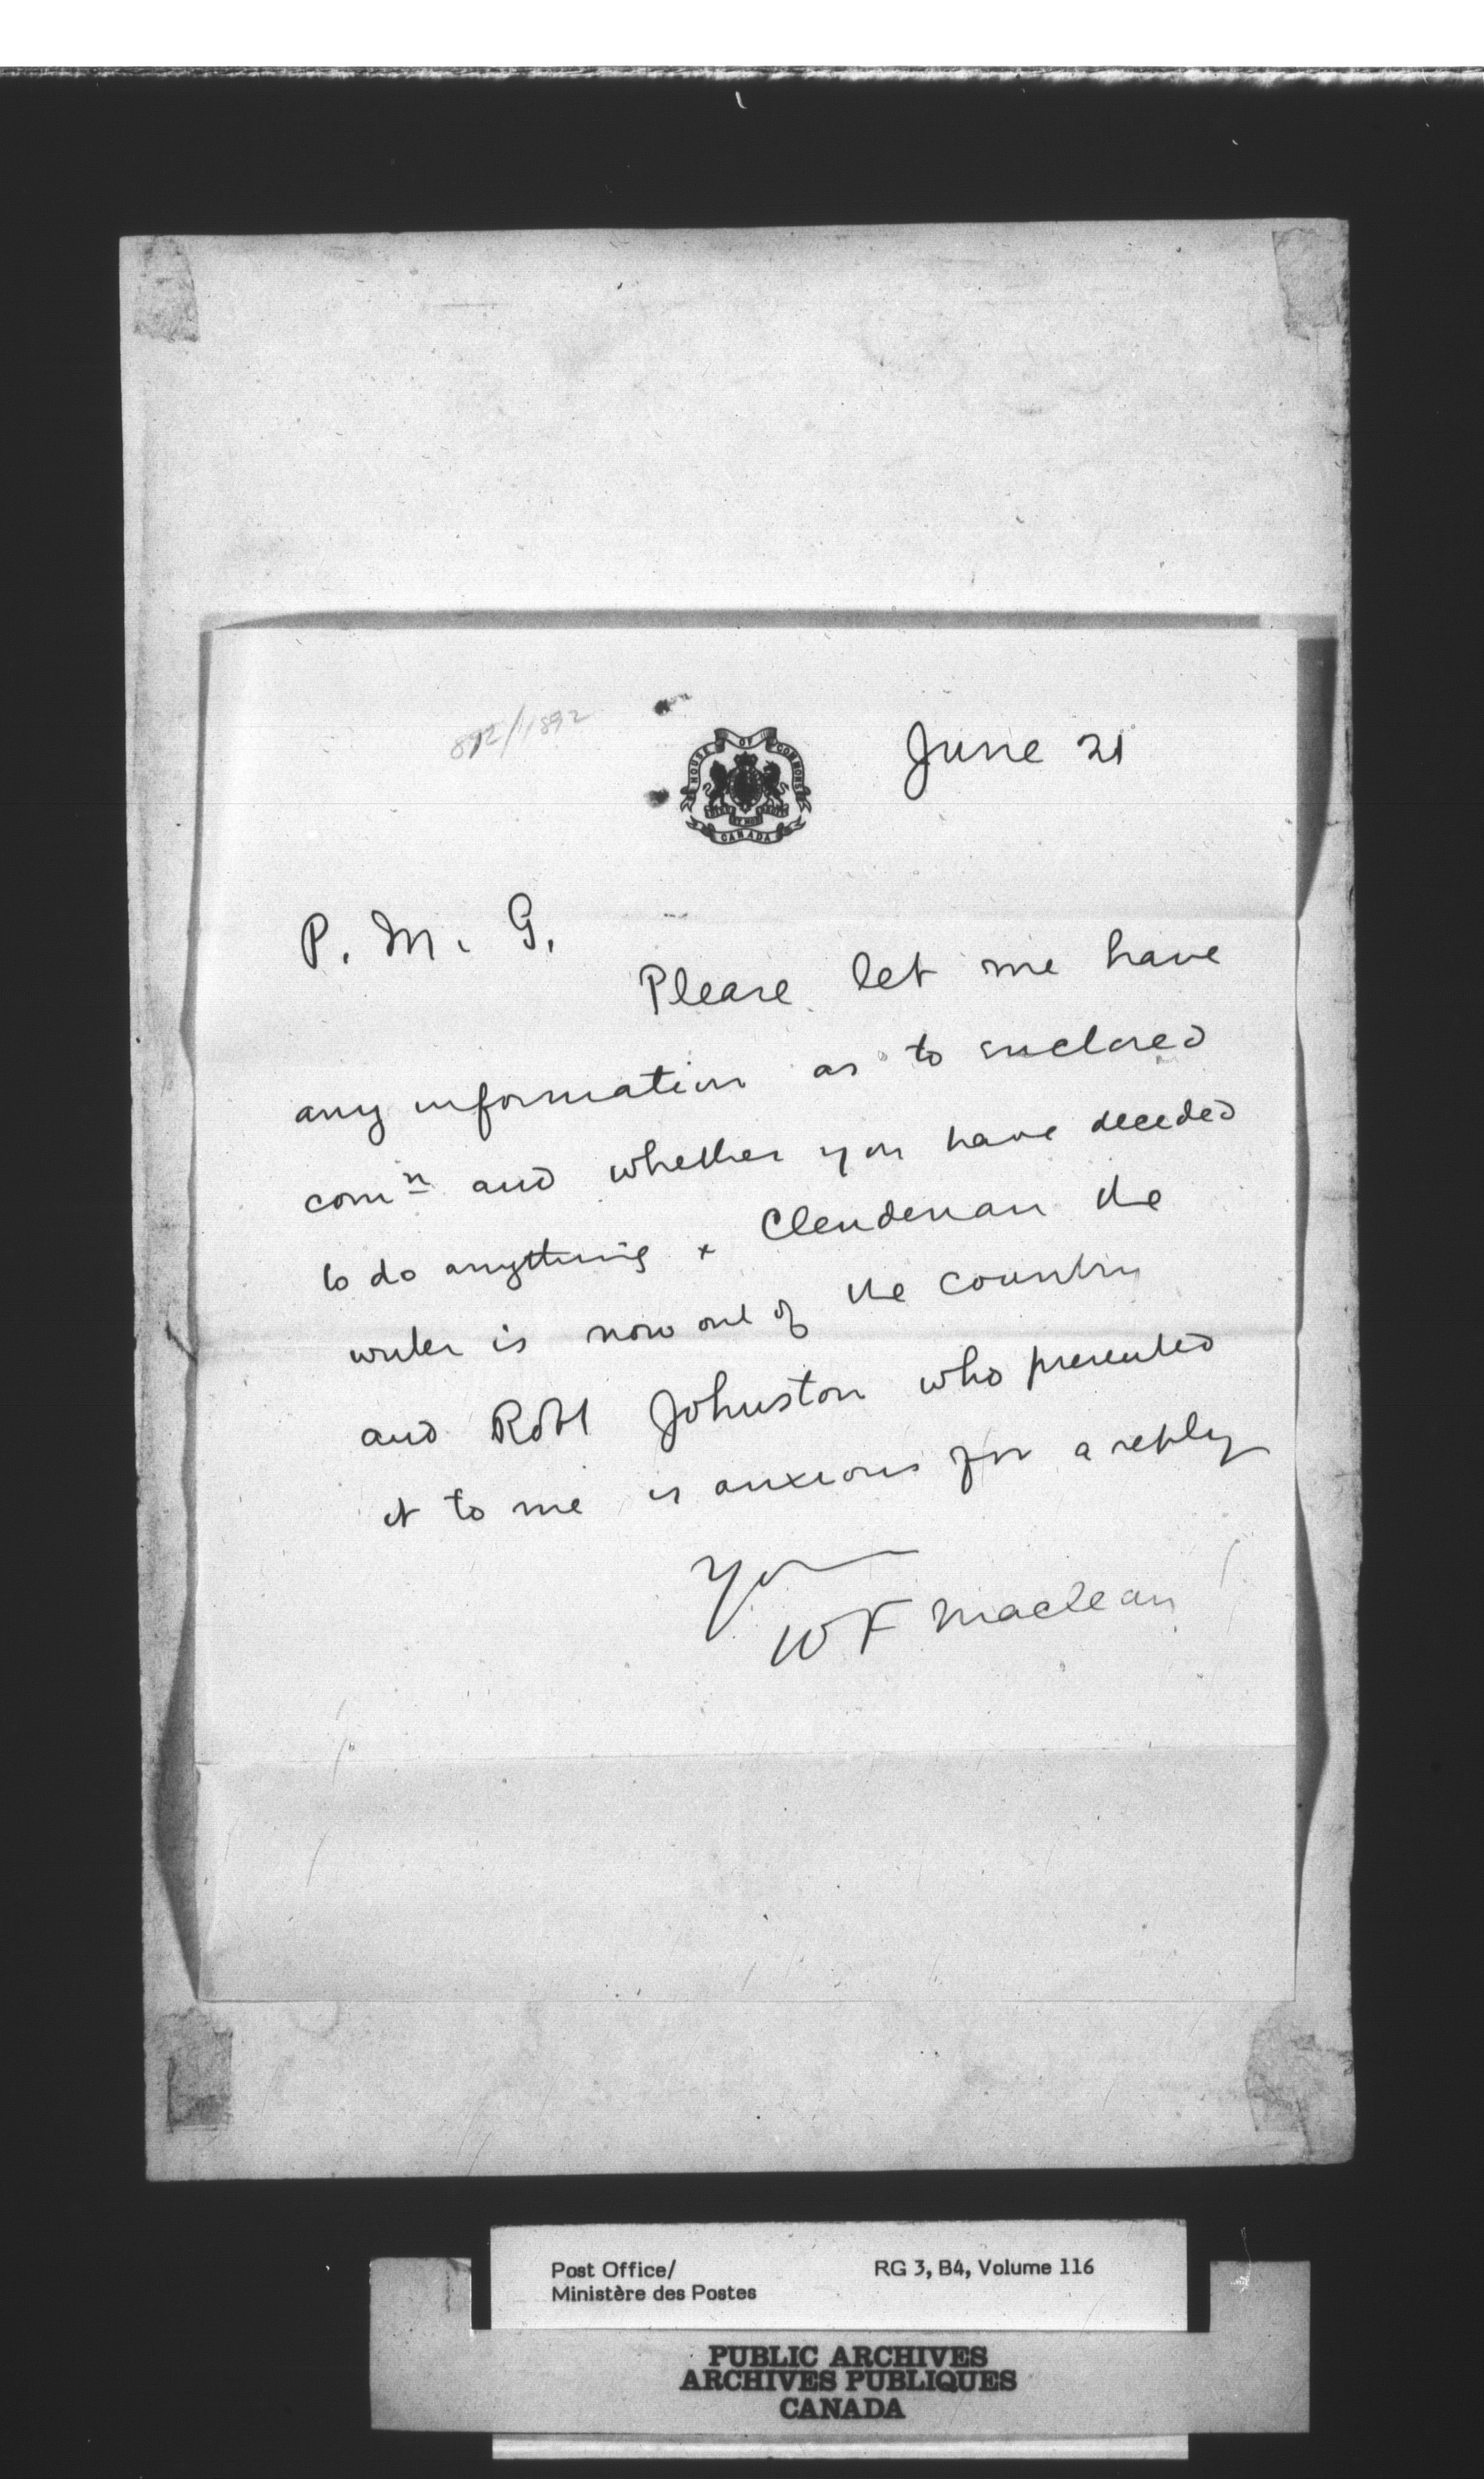 892/1892
HOUSE OF COMMONS
CANADA
June 21
P. M. G.
Please let me have
any information as to enclosed
comn and whether you have decided
to do anything x Clendenan the
writer is now out of the country
and Robt Johnston who presented
it to me is anxious for a reply
Yours
W F Maclean
Post Office/ RG 3, B4, Volume 116
Ministère des Postes
PUBLIC ARCHIVES
ARCHIVES PUBLIQUES
CANADA